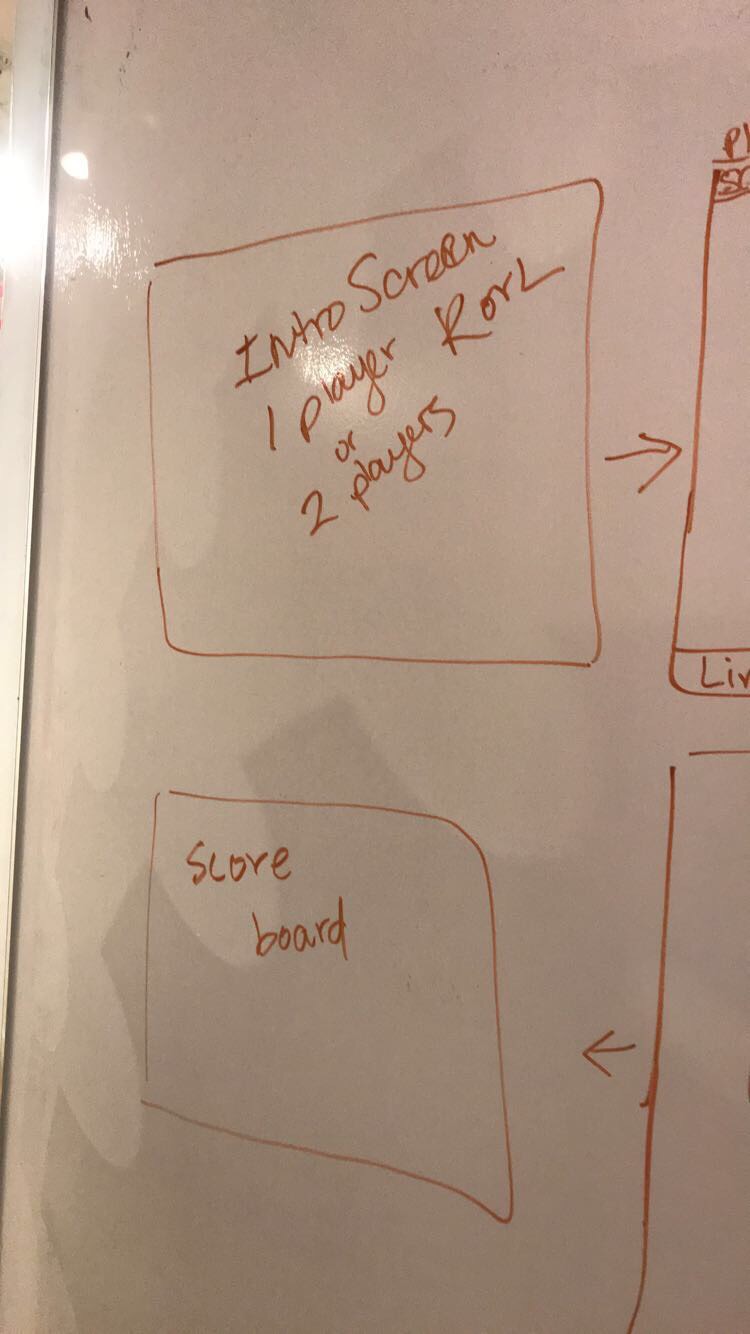 Intro Screen
1 player R or L
or
2 players
Score
board